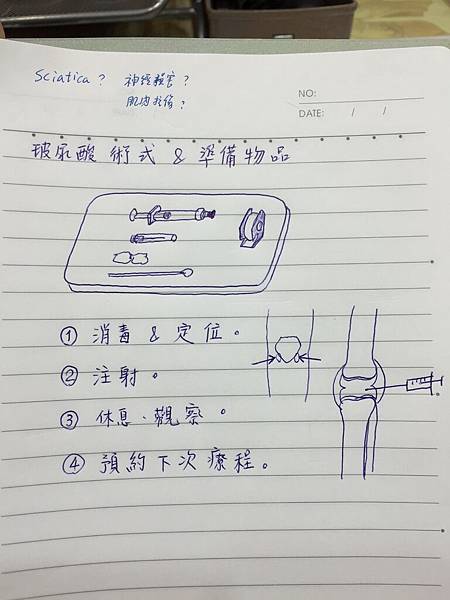 Sciatica? 神經損害?
肌肉拉傷?
NO:
DATE: / /
玻尿酸 術式 & 準備物品
① 消毒 & 定位。
② 注射。
③ 休息、觀察。
④ 預約下次療程。